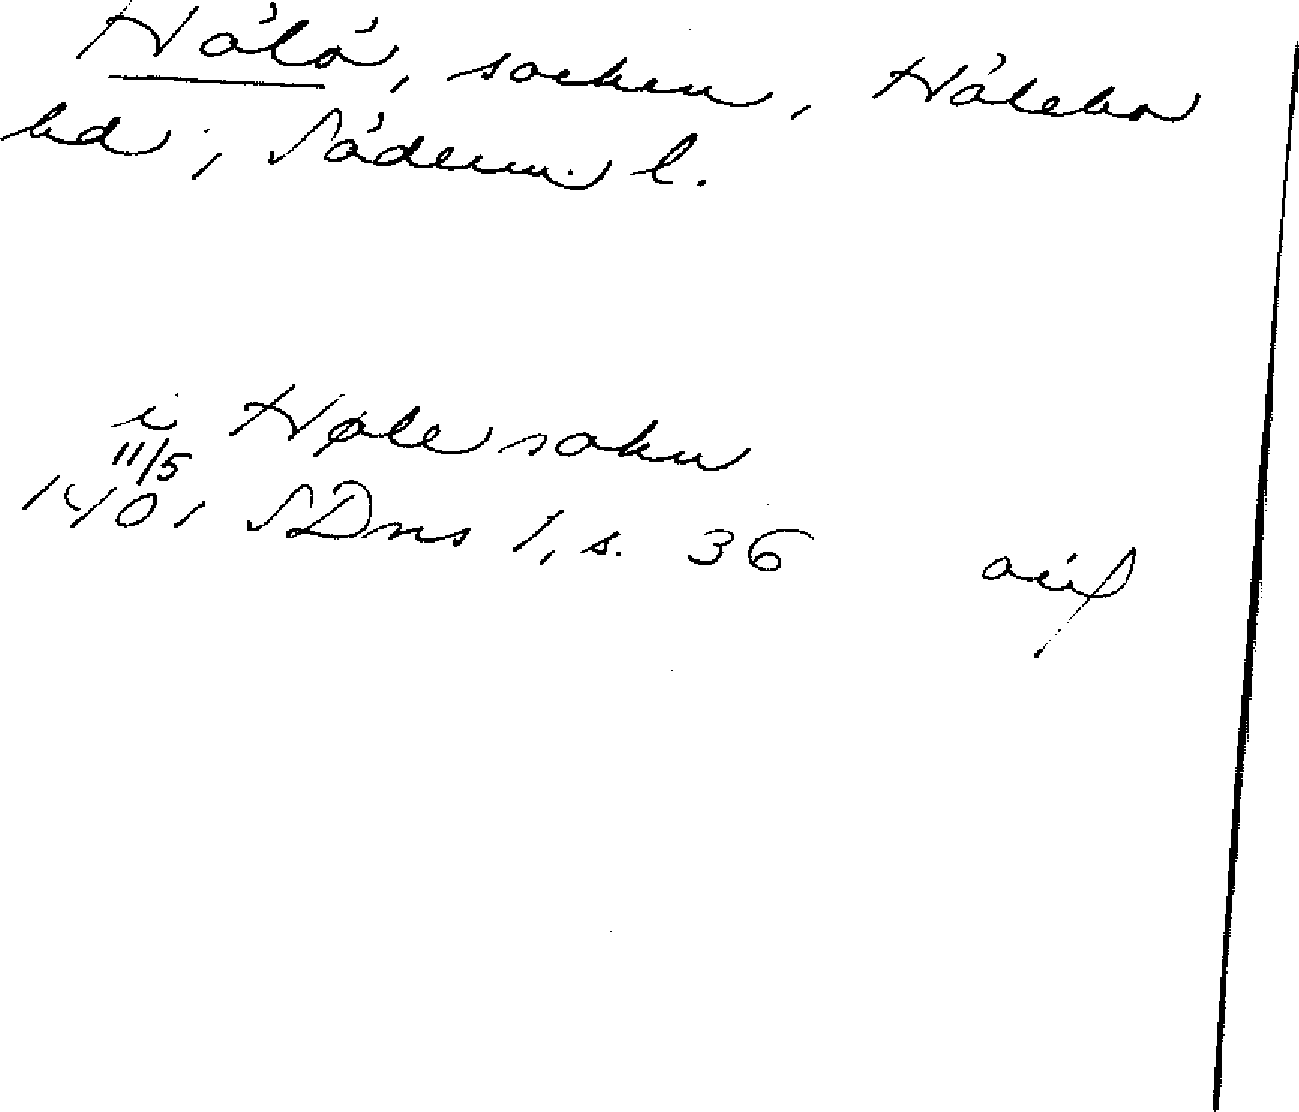 Hölö, socken, Hölebo
hd, Söderm. l.
i Høle sokn
11/5
1401 SDns 1, s. 36 avs